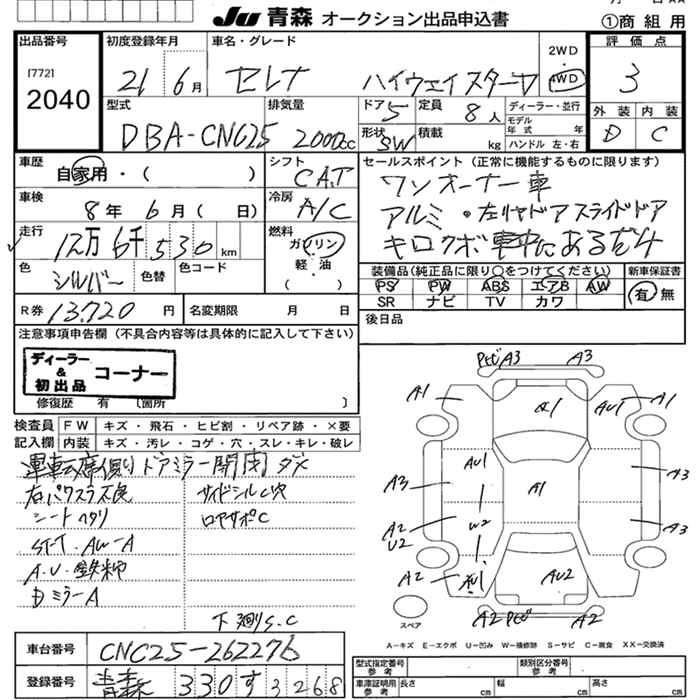 JU 青森 オークション出品申込書
①商組用
出品番号
[772]
2040
初度登録年月
21 6月
車名・グレード
セレナ ハイウェイスター
2WD
4WD
評価点
3
型式
DBA-CNC25
排気量
2000cc
ドア
5
定員
8人
ディーラー・並行
モデル
年式 年
ハンドル 左・右
形状
SW
積載
kg
外装
D
内装
C
車歴
自家用・( )
シフト
CAT
セールスポイント(正常に機能するものに限ります)
ワンオーナー車
アルミ・左リヤドアスライドドア
車検
8年 6月( 日)
冷房
A/C
走行
12万6千530km
燃料
ガソリン
軽・油
色
シルバー
色替
色コード
装備品(純正品に限り○をつけてください)
新車保証書
PS PW ABS エアB AW
SR ナビ TV カワ
有・無
R券
13,720円
名変期限 月 日
後日品
注意事項申告欄(不具合内容等は具体的に記入して下さい)
ディーラー
&
初出品
コーナー
修復歴 有 〔箇所 〕
検査員
記入欄
FW キズ・飛石・ヒビ割・リペア跡・×要
内装 キズ・汚レ・コゲ・穴・スレ・キレ・破レ
運転席側ドアミラー開閉ダメ
右パワスラ不良
サイドシルC穴
シートヘタリ
ロアサポC
ST-T. AW-A
DミラーA
下廻りS.C
車台番号
CNC25-262276
登録番号
青森 330 す 3268
A1
A3
A3
A1
AU1
A1
AU1
A3
A1
A3
A2
U2
W2
A3
A2
AU1
AU2
A2
A2
スペア
A－キズ E－エクボ U－凹み W－補修跡 S－サビ C－腐食 XX－交換済
型式指定番号
参考
類別区分番号
参考
車庫証明用
参考
長さ cm
幅 cm
高さ cm